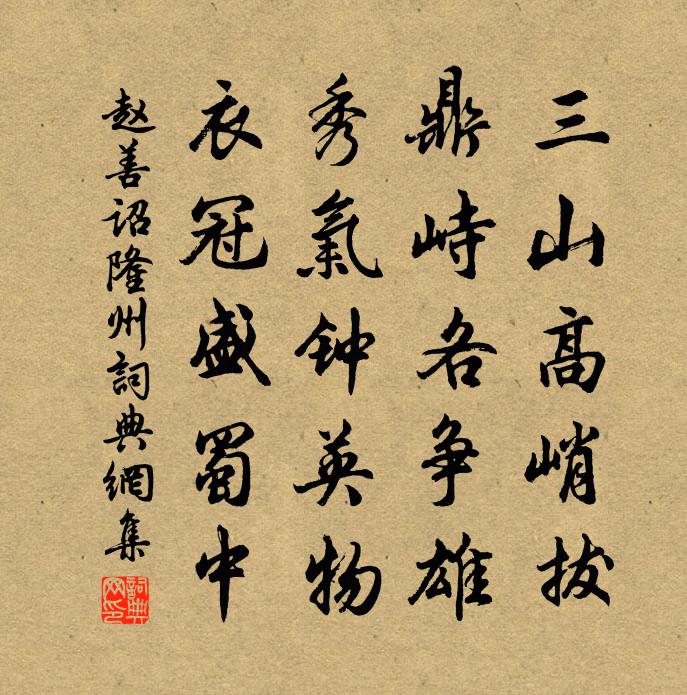 三山高峭拔
鼎峙各争雄
秀氣钟英物
衣冠盛蜀中
赵善诏隆州詞典網集
詞典网印